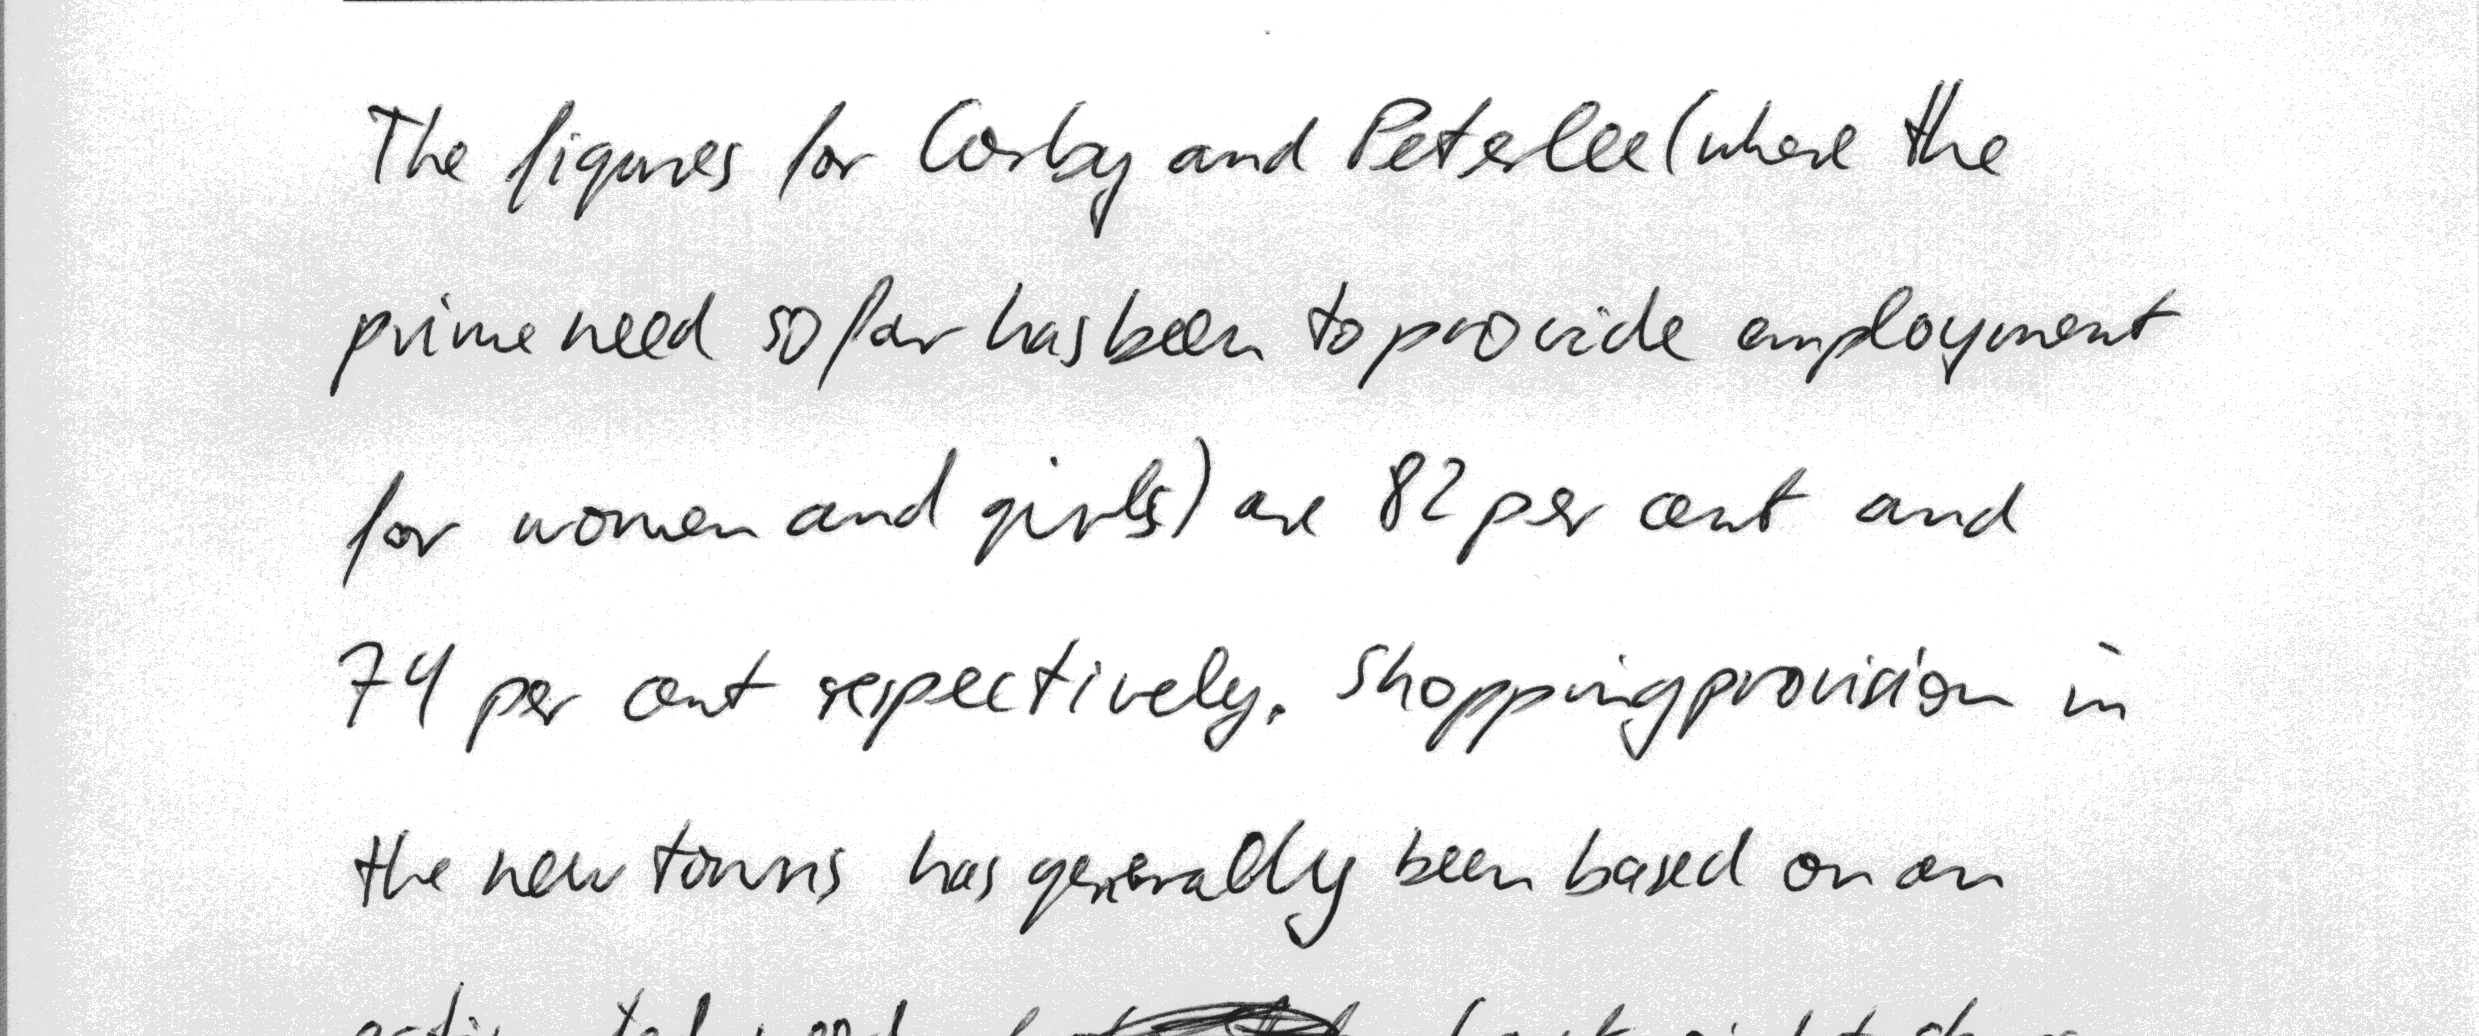 The figures for Corby and Peterlee (where the
prime need so far has been to provide employment
for women and girls) are 82 per cent and
74 per cent respectively. Shopping provision in
the new towns has generally been based on an